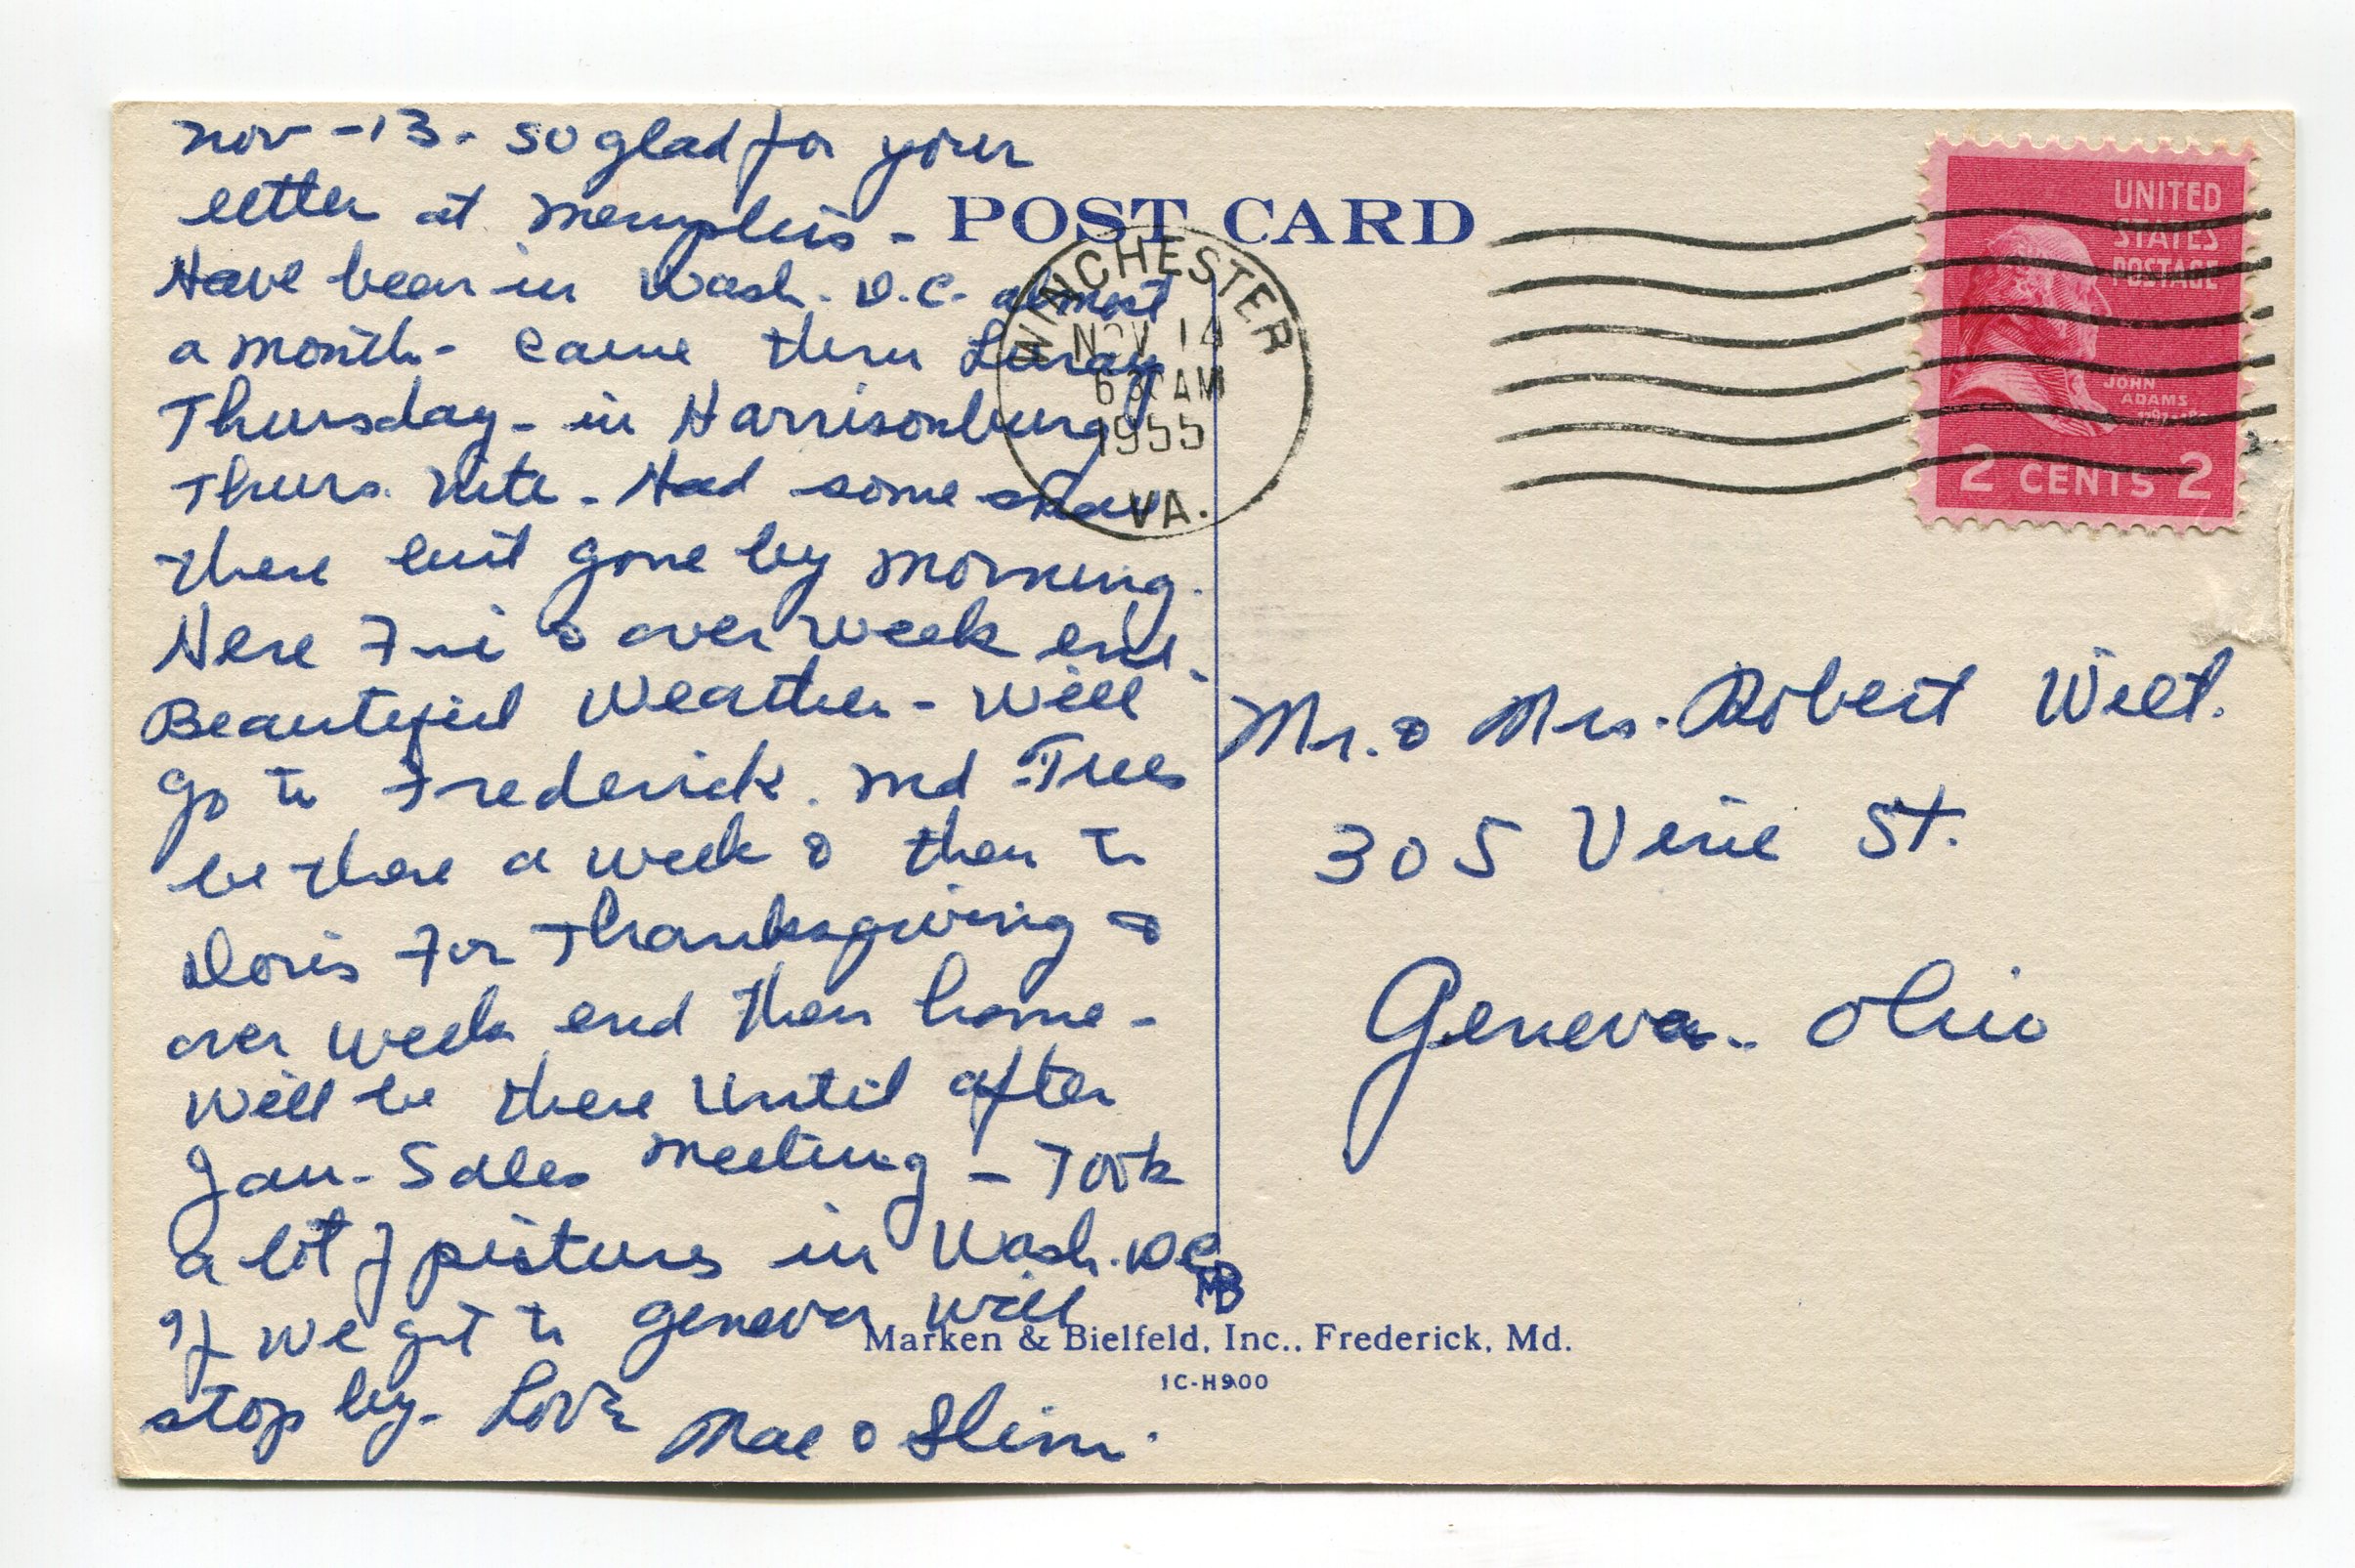 Nov-13- so glad for your
letter at Memphis -
Have been in Wash. D.C. almost
a month - Came thru Luray
Thursday - in Harrisonburg
Thurs. Nite. Had some snow
there but gone by morning.
Here Fri & over week end.
Beautiful Weather - Will
go to Frederick. Md Tues
be there a week & then to
Doris for Thanksgiving &
over week end then home -
Will be there until after
Jan. Sales meeting - Took
a lot of pictures in Wash. DC
If we get to Geneva will
stop by. Love Mae & Slim.
POST CARD
WINCHESTER
NOV 14
630AM
1955
VA.
UNITED
STATES
POSTAGE
JOHN
ADAMS
2 CENTS 2
Mr. & Mrs. Robert Wilt.
305 Vine St.
Geneva - Ohio
MB
Marken & Bielfeld, Inc., Frederick, Md.
1C-H900